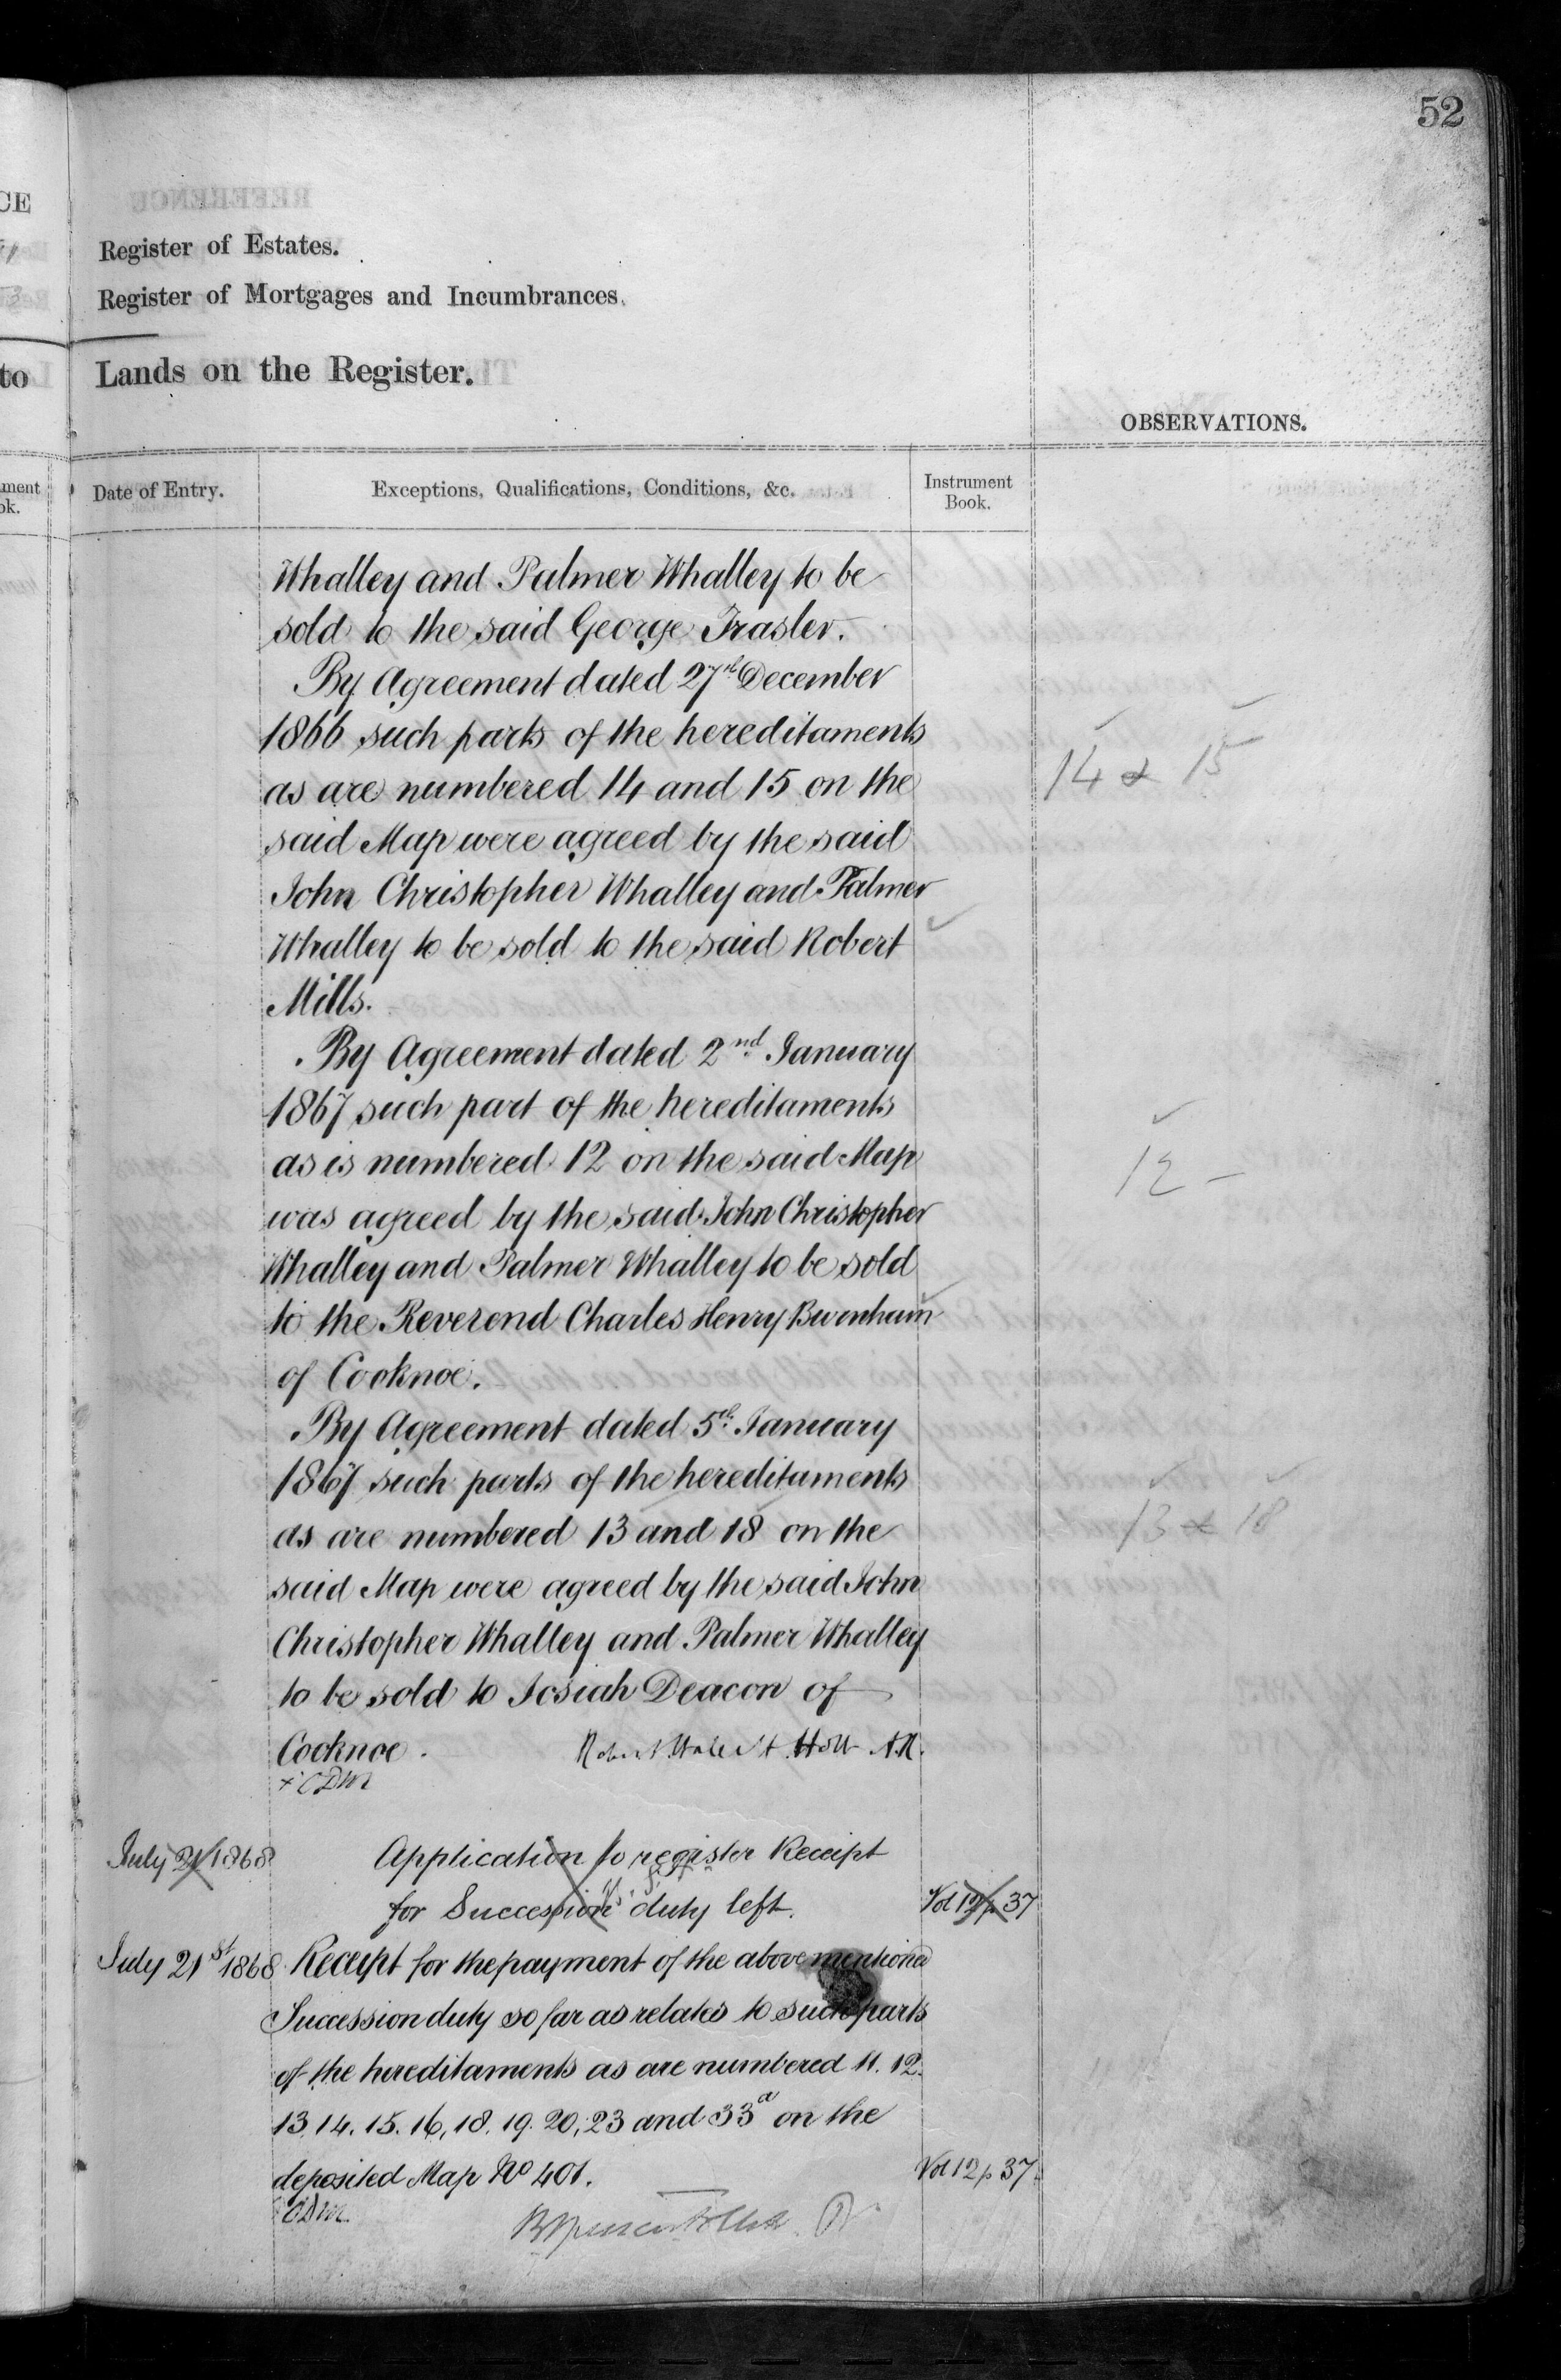 52
CE
Register of Estates.
Register of Mortgages and Incumbrances.
to
Lands on the Register.
OBSERVATIONS.
Date of Entry.
Exceptions, Qualifications, Conditions, &c.
Instrument
Book.
Whalley and Palmer Whalley to be
sold to the said George Frasler.
By Agreement dated 27th December
1866 such parts of the hereditaments
as are numbered 14 and 15 on the
14 & 15
said Map were agreed by the said
John Christopher Whalley and Palmer
Whalley to be sold to the said Robert
Mills.
By Agreement dated 2nd January
1867 such part of the hereditaments
as is numbered 12 on the said Map
12 -
was agreed by the said John Christopher
Whalley and Palmer Whalley to be sold
to the Reverend Charles Henry Burnham
of Cooknoe.
By Agreement dated 5th January
1867 such parts of the hereditaments
as are numbered 13 and 18 on the
13 & 18
said Map were agreed by the said John
Christopher Whalley and Palmer Whalley
to be sold to Josiah Deacon of
Cooknoe. Robert Hallett Holt A.R.
+ CDM
July 21 1868 Application to register Receipt
for Succession duty left. Vol 12 p 37
July 21st 1868 Receipt for the payment of the above mentioned
Succession duty so far as relates to such parts
of the hereditaments as are numbered 11. 12.
13. 14. 15. 16, 18. 19. 20, 23 and 33a on the
deposited Map No 401. Vol 12 p 37.
CDM.